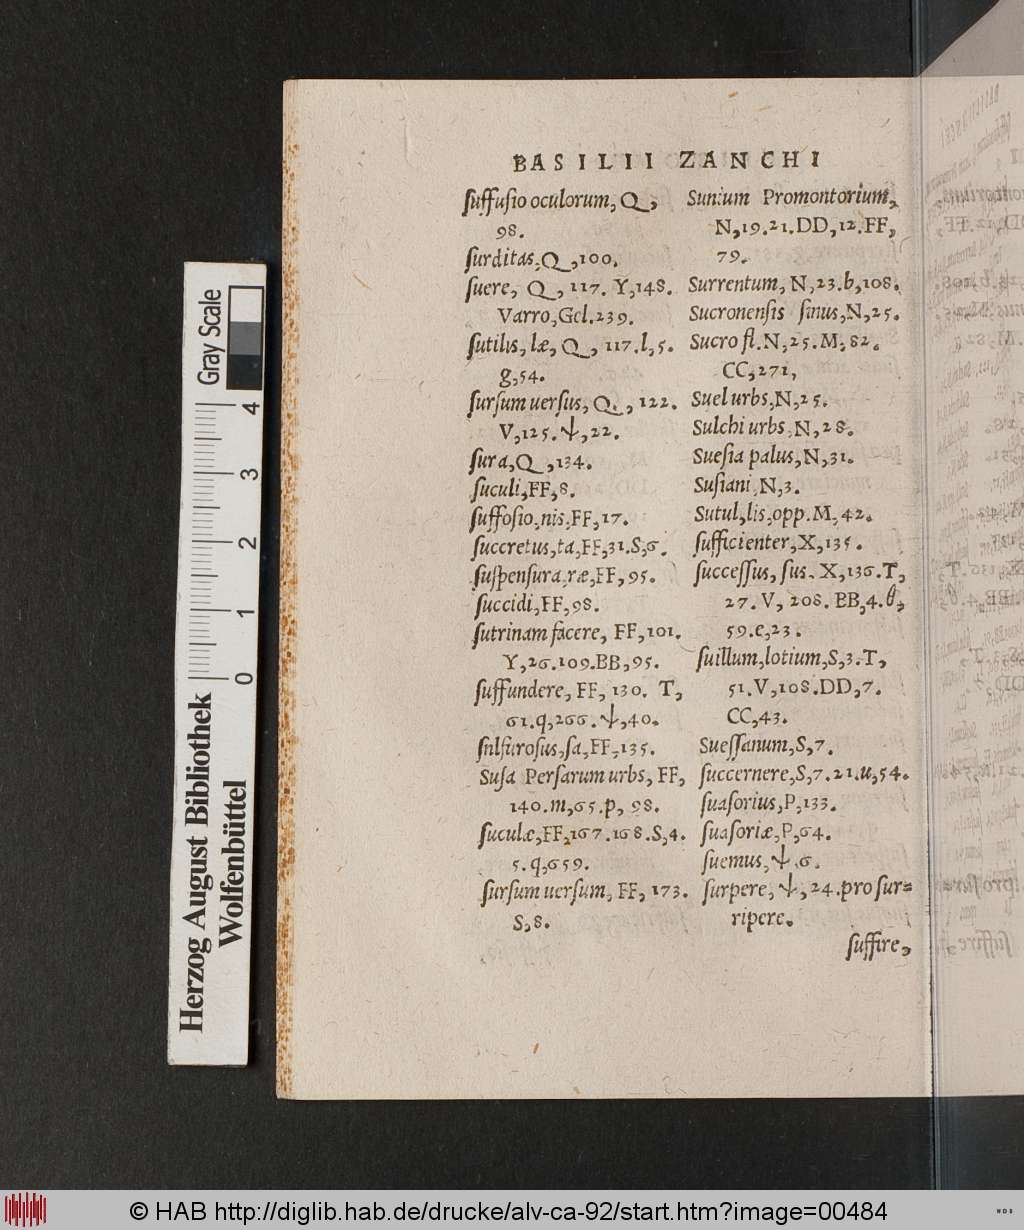 BASILII ZANCHI
ſuffuſio oculorum, Q,
98.
ſurditas, Q, 100.
ſuere, Q, 117. Y, 148.
Varro, Gel. 239.
ſutilis, læ, Q, 117. l, 5.
g, 54.
ſurſum uerſus, Q., 122.
V, 125. ψ, 22.
ſura, Q, 134.
ſuculi, FF, 8.
ſuffoſio, nis, FF, 17.
ſuccretus, ta, FF, 31. S, 6.
ſuſpenſura, ræ, FF, 95.
ſuccidi, FF, 98.
ſutrinam facere, FF, 101.
Y, 26. 109. BB, 95.
ſuffundere, FF, 130. T,
61. q, 266. ψ, 40.
ſulfuroſus, ſa, FF, 135.
Suſa Perſarum urbs, FF,
140. m, 65. p, 98.
ſuculæ, FF, 167. 168. S, 4.
5. q, 659.
ſurſum uerſum, FF, 173.
S, 8.
Sunium Promontorium,
N, 19. 21. DD, 12. FF,
79.
Surrentum, N, 23. b, 108.
Sucronenſis ſinus, N, 25.
Sucro fl. N, 25. M, 82.
CC, 271,
Suel urbs, N, 25.
Sulchi urbs, N, 28.
Sueſia palus, N, 31.
Suſiani, N, 3.
Sutul, lis, opp. M, 42.
ſufficienter, X, 135.
ſucceſſus, ſus, X, 136. T,
27. V, 208. BB, 4. θ,
59. e, 23.
ſuillum, lotium, S, 3. T,
51. V, 108. DD, 7.
CC, 43.
Sueſſanum, S, 7.
ſuccernere, S, 7. 21. u, 54.
ſuaſorius, P, 133.
ſuaſoriæ, P, 64.
ſuemus, ψ, 6.
ſurpere, ψ, 24. pro ſur=
ripere.
ſuffire,
Herzog August Bibliothek
Wolfenbüttel
Gray Scale
0 1 2 3 4
© HAB http://diglib.hab.de/drucke/alv-ca-92/start.htm?image=00484
WDB